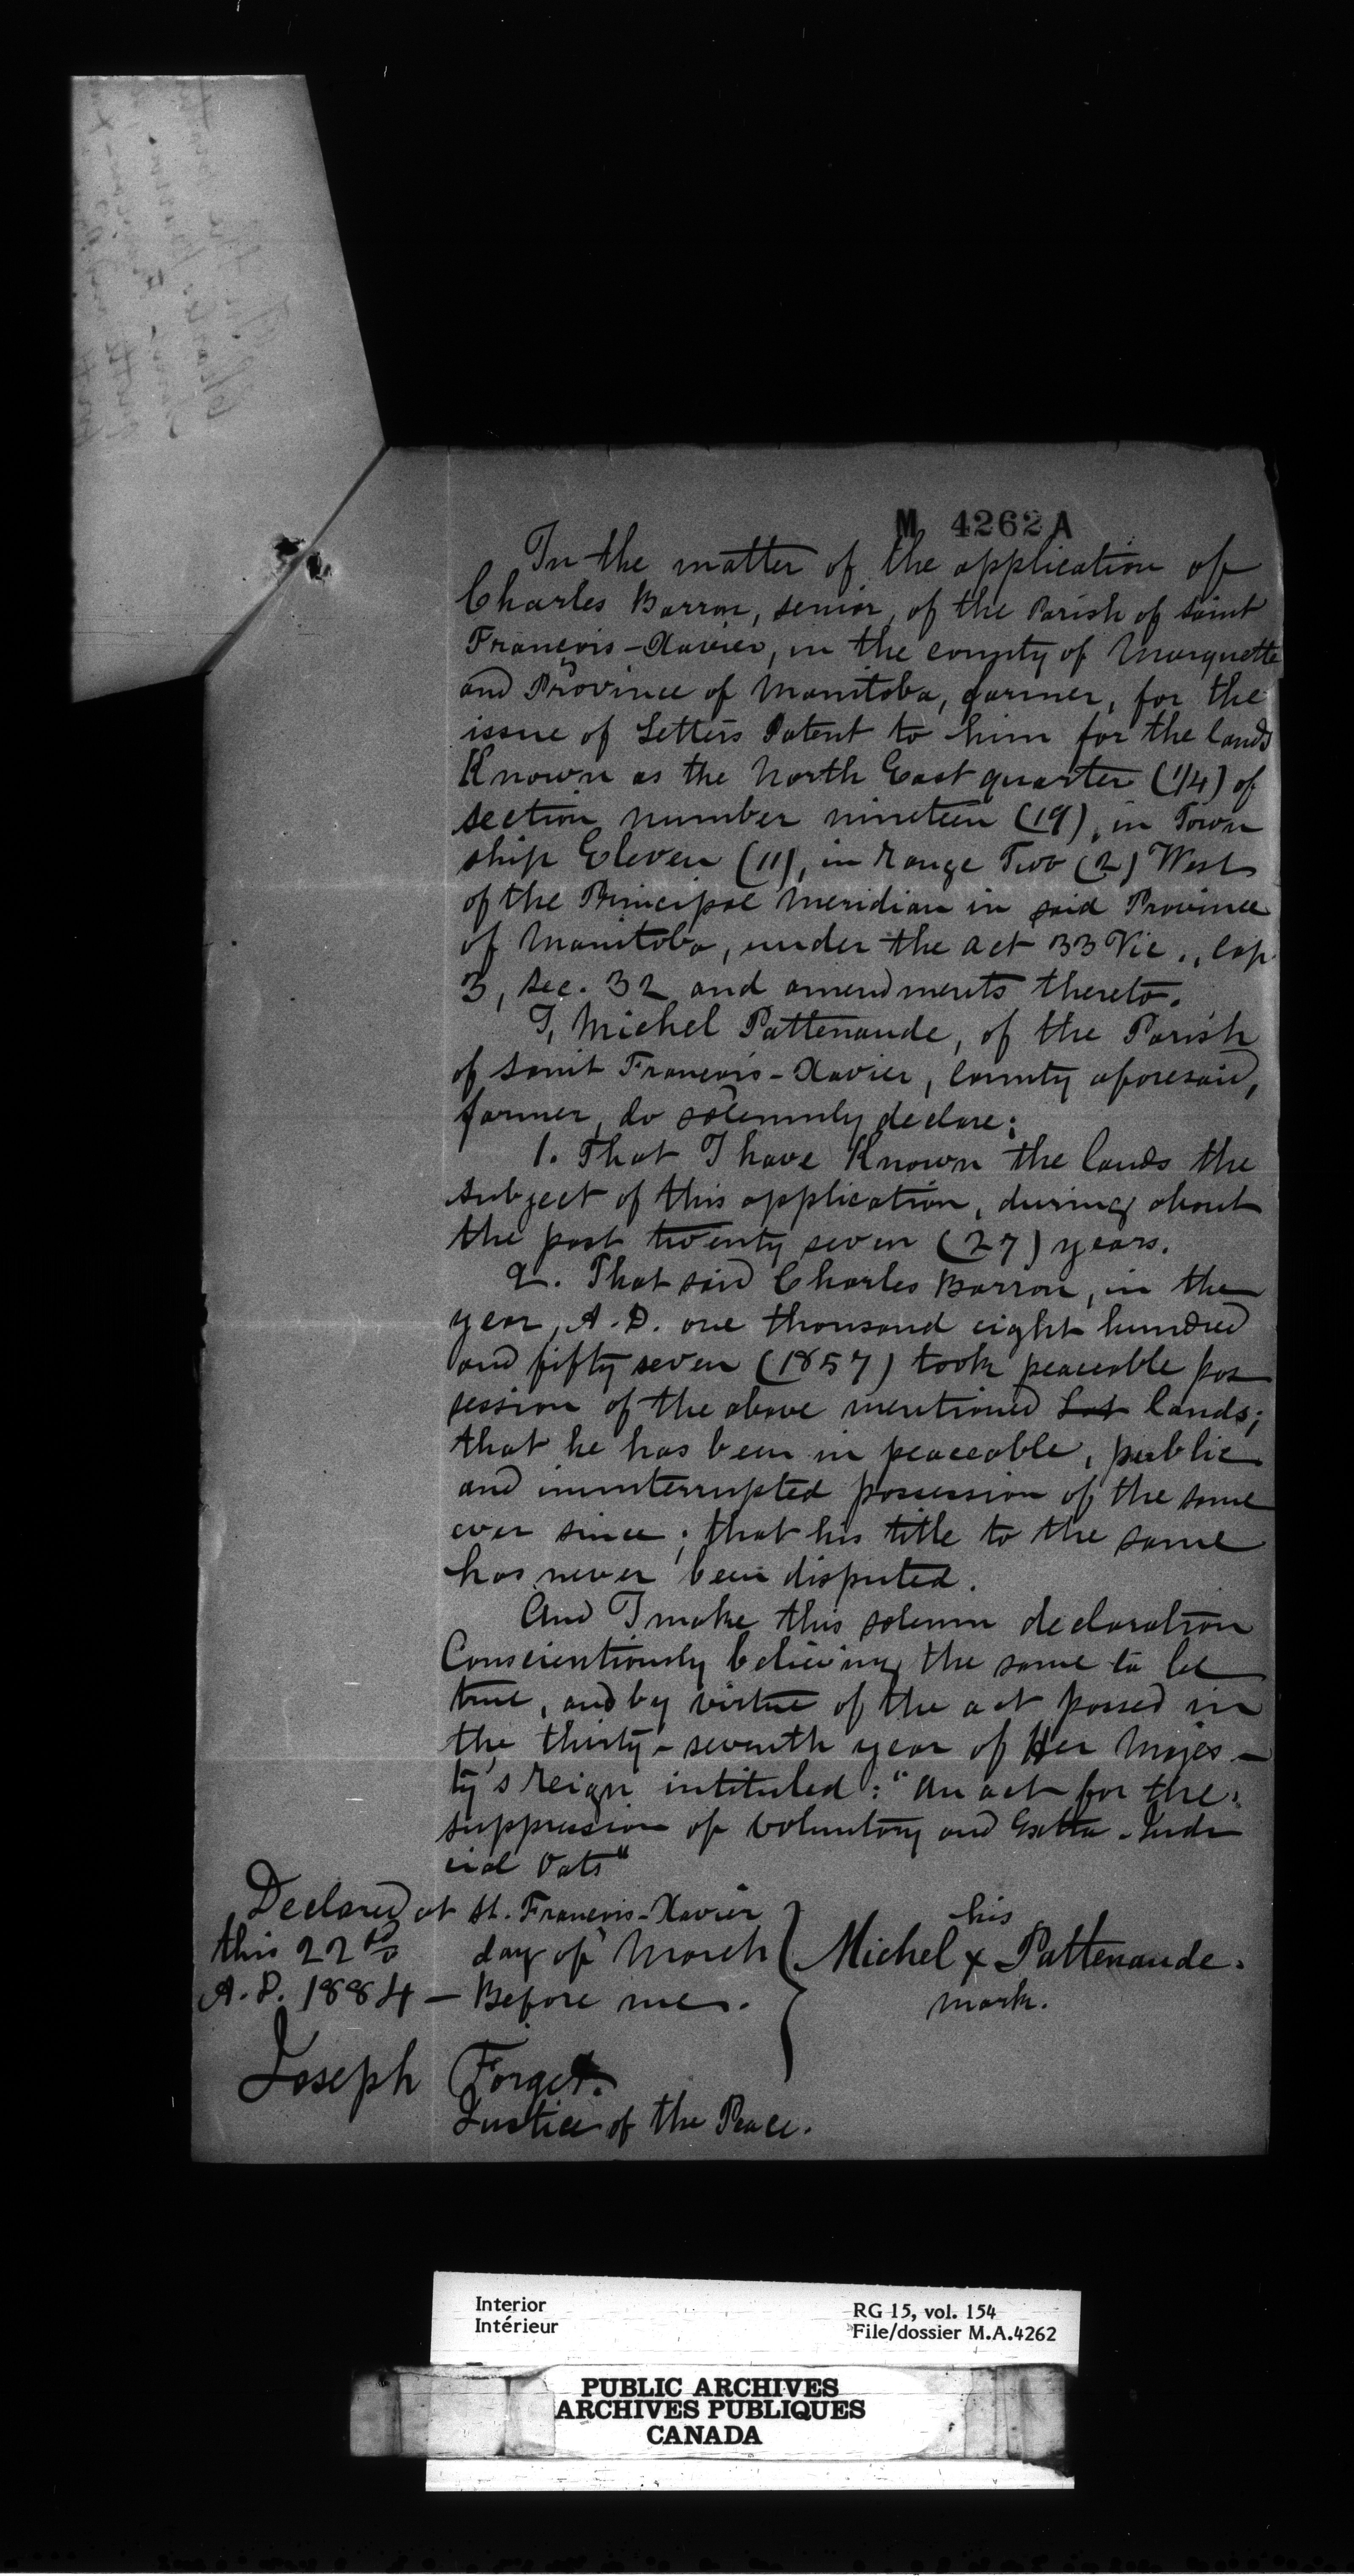 M 4262 A
In the matter of the application of
Charles Barron, senior, of the Parish of Saint
François-Xavier, in the county of Marquette
and Province of Manitoba, farmer, for the
issue of Letters Patent to him for the lands
Known as the North East quarter (1/4) of
section number nineteen (19), in Town
ship Eleven (11), in range Two (2) West
of the Principal Meridian in said Province
of Manitoba, under the act 33 Vic., Cap
3, sec. 32 and amendments thereto.
I, Michel Pattenaude, of the Parish
of Saint François-Xavier, County aforesaid,
farmer, do solemnly declare:
1. That I have Known the lands the
subject of this application, during about
the past twenty seven (27) years.
2. That said Charles Barron, in the
year, A.D. one thousand eight hundred
and fifty seven (1857) took peaceable pos
session of the above mentioned Lot lands;
that he has been in peaceable, public
and ininterrupted possession of the same
ever since; that his title to the same
has never been disputed.
And I make this solemn declaration
Conscientiously believing the same to be
true, and by virtue of the act passed in
the thirty-seventh year of Her Majes-
ty's reign intituled: "An act for the
suppression of voluntary and Extra-Judi
cial Oats"
Declared at St. François-Xavier
this 22nd day of March
A.D. 1884 — Before me.
his
Michel x Pattenaude.
mark.
Joseph Forget.
Justice of the Peace.
Interior
Intérieur
RG 15, vol. 154
File/dossier M.A.4262
PUBLIC ARCHIVES
ARCHIVES PUBLIQUES
CANADA